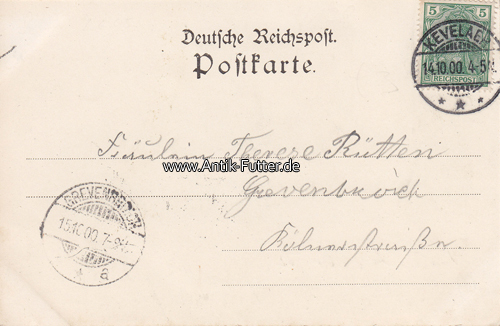 Deutsche Reichspost.
Postkarte.
5 5
REICHSPOST
KEVELAER
14.10.00. 4-5N.
* * *
Fräulein Therese Rütten
www.Antik-Futter.de
Grevenbroich
Kölnerstraße
GREVENBROICH
15.10.00. 7-8V.
* a